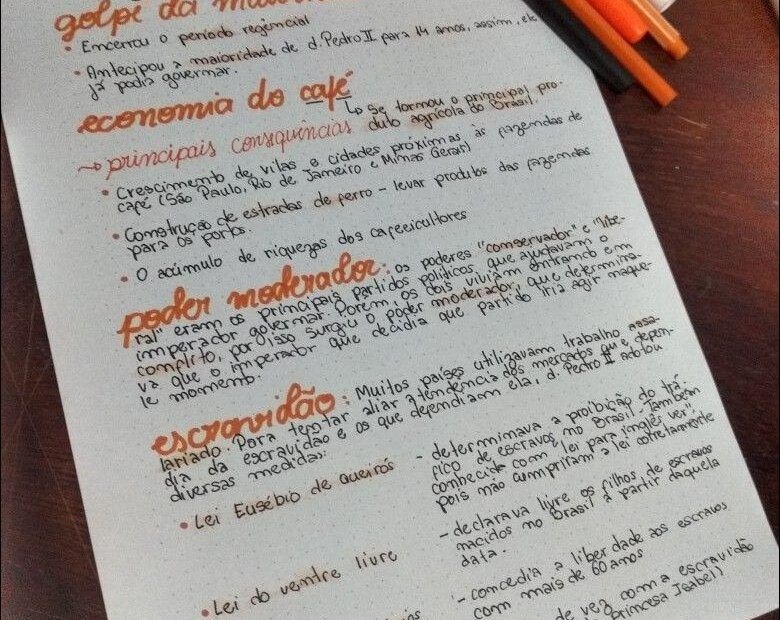 golpe da
• Encerrou o período regencial
• Antecipou a maioridade de d. Pedro II para 14 anos, assim, ele
já podia governar.
economia do café
↳ se tornou o principal pro-
duto agrícola do Brasil.
→ principais consquências
• Crescimento de vilas e cidades próximas às fazendas de
café (São Paulo, Rio de Janeiro e Minas Gerais)
• Construção de estradas de ferro - levar produtos das fazendas
para os portos.
• O acúmulo de riquezas dos cafeeicultores
poder moderador: os poderes "conservador" e "libe-
ral" eram os principais partidos políticos que ajudavam o
imperador governar. Porém, os dois viviam entrando em
conflito, por isso surgiu o poder moderador, que determina-
va que o imperador que decidia que partido iria agir naque-
le momento.
escravidão: Muitos países utilizavam trabalho assa-
lariado. Para tentar aliar a tendencia dos mercados que depen-
dia da escravidão e os que defendiam ela, d. Pedro II adotou
diversas medidas:
• Lei Eusébio de Queirós
- determinava a proibição do trá-
fico de escravos no Brasil. Também
conhecida com "lei para inglês ver",
pois não cumpriram a lei corretamente
• Lei do ventre livre
- declarava livre os filhos de escravos
nacidos no Brasil a partir daquela
data.
- concedia a liberdade aos escravos
com mais de 60 anos
de vez com a escravidão
princesa Isabel)